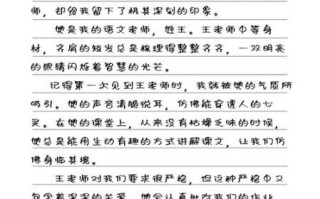 师，却给我留下了极其深刻的印象。
她是我的语文老师，姓王。王老师中等身
材，齐肩的短发总是梳理得整整齐齐，一双明亮
的眼睛闪烁着智慧的光芒。
记得第一次见到王老师时，我就被她的气质所
吸引。她的声音清脆悦耳，仿佛能穿透人的心
灵。在她的课堂上，从来没有枯燥乏味的时候，
她总是能用生动有趣的方式讲解课文，让我们仿
佛身临其境。
王老师对我们要求很严格，但这种严格中又
包含着深深的关爱。她会认真批改我们的作业